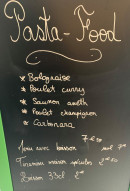 Pasta-Food
* Bolognaise
* Poulet curry
* Saumon aneth
* Poulet champignon
* Carbonara
7€50
Menu avec boisson
Tiramisu maison spéculos 2€50
Boisson 33cl 2€